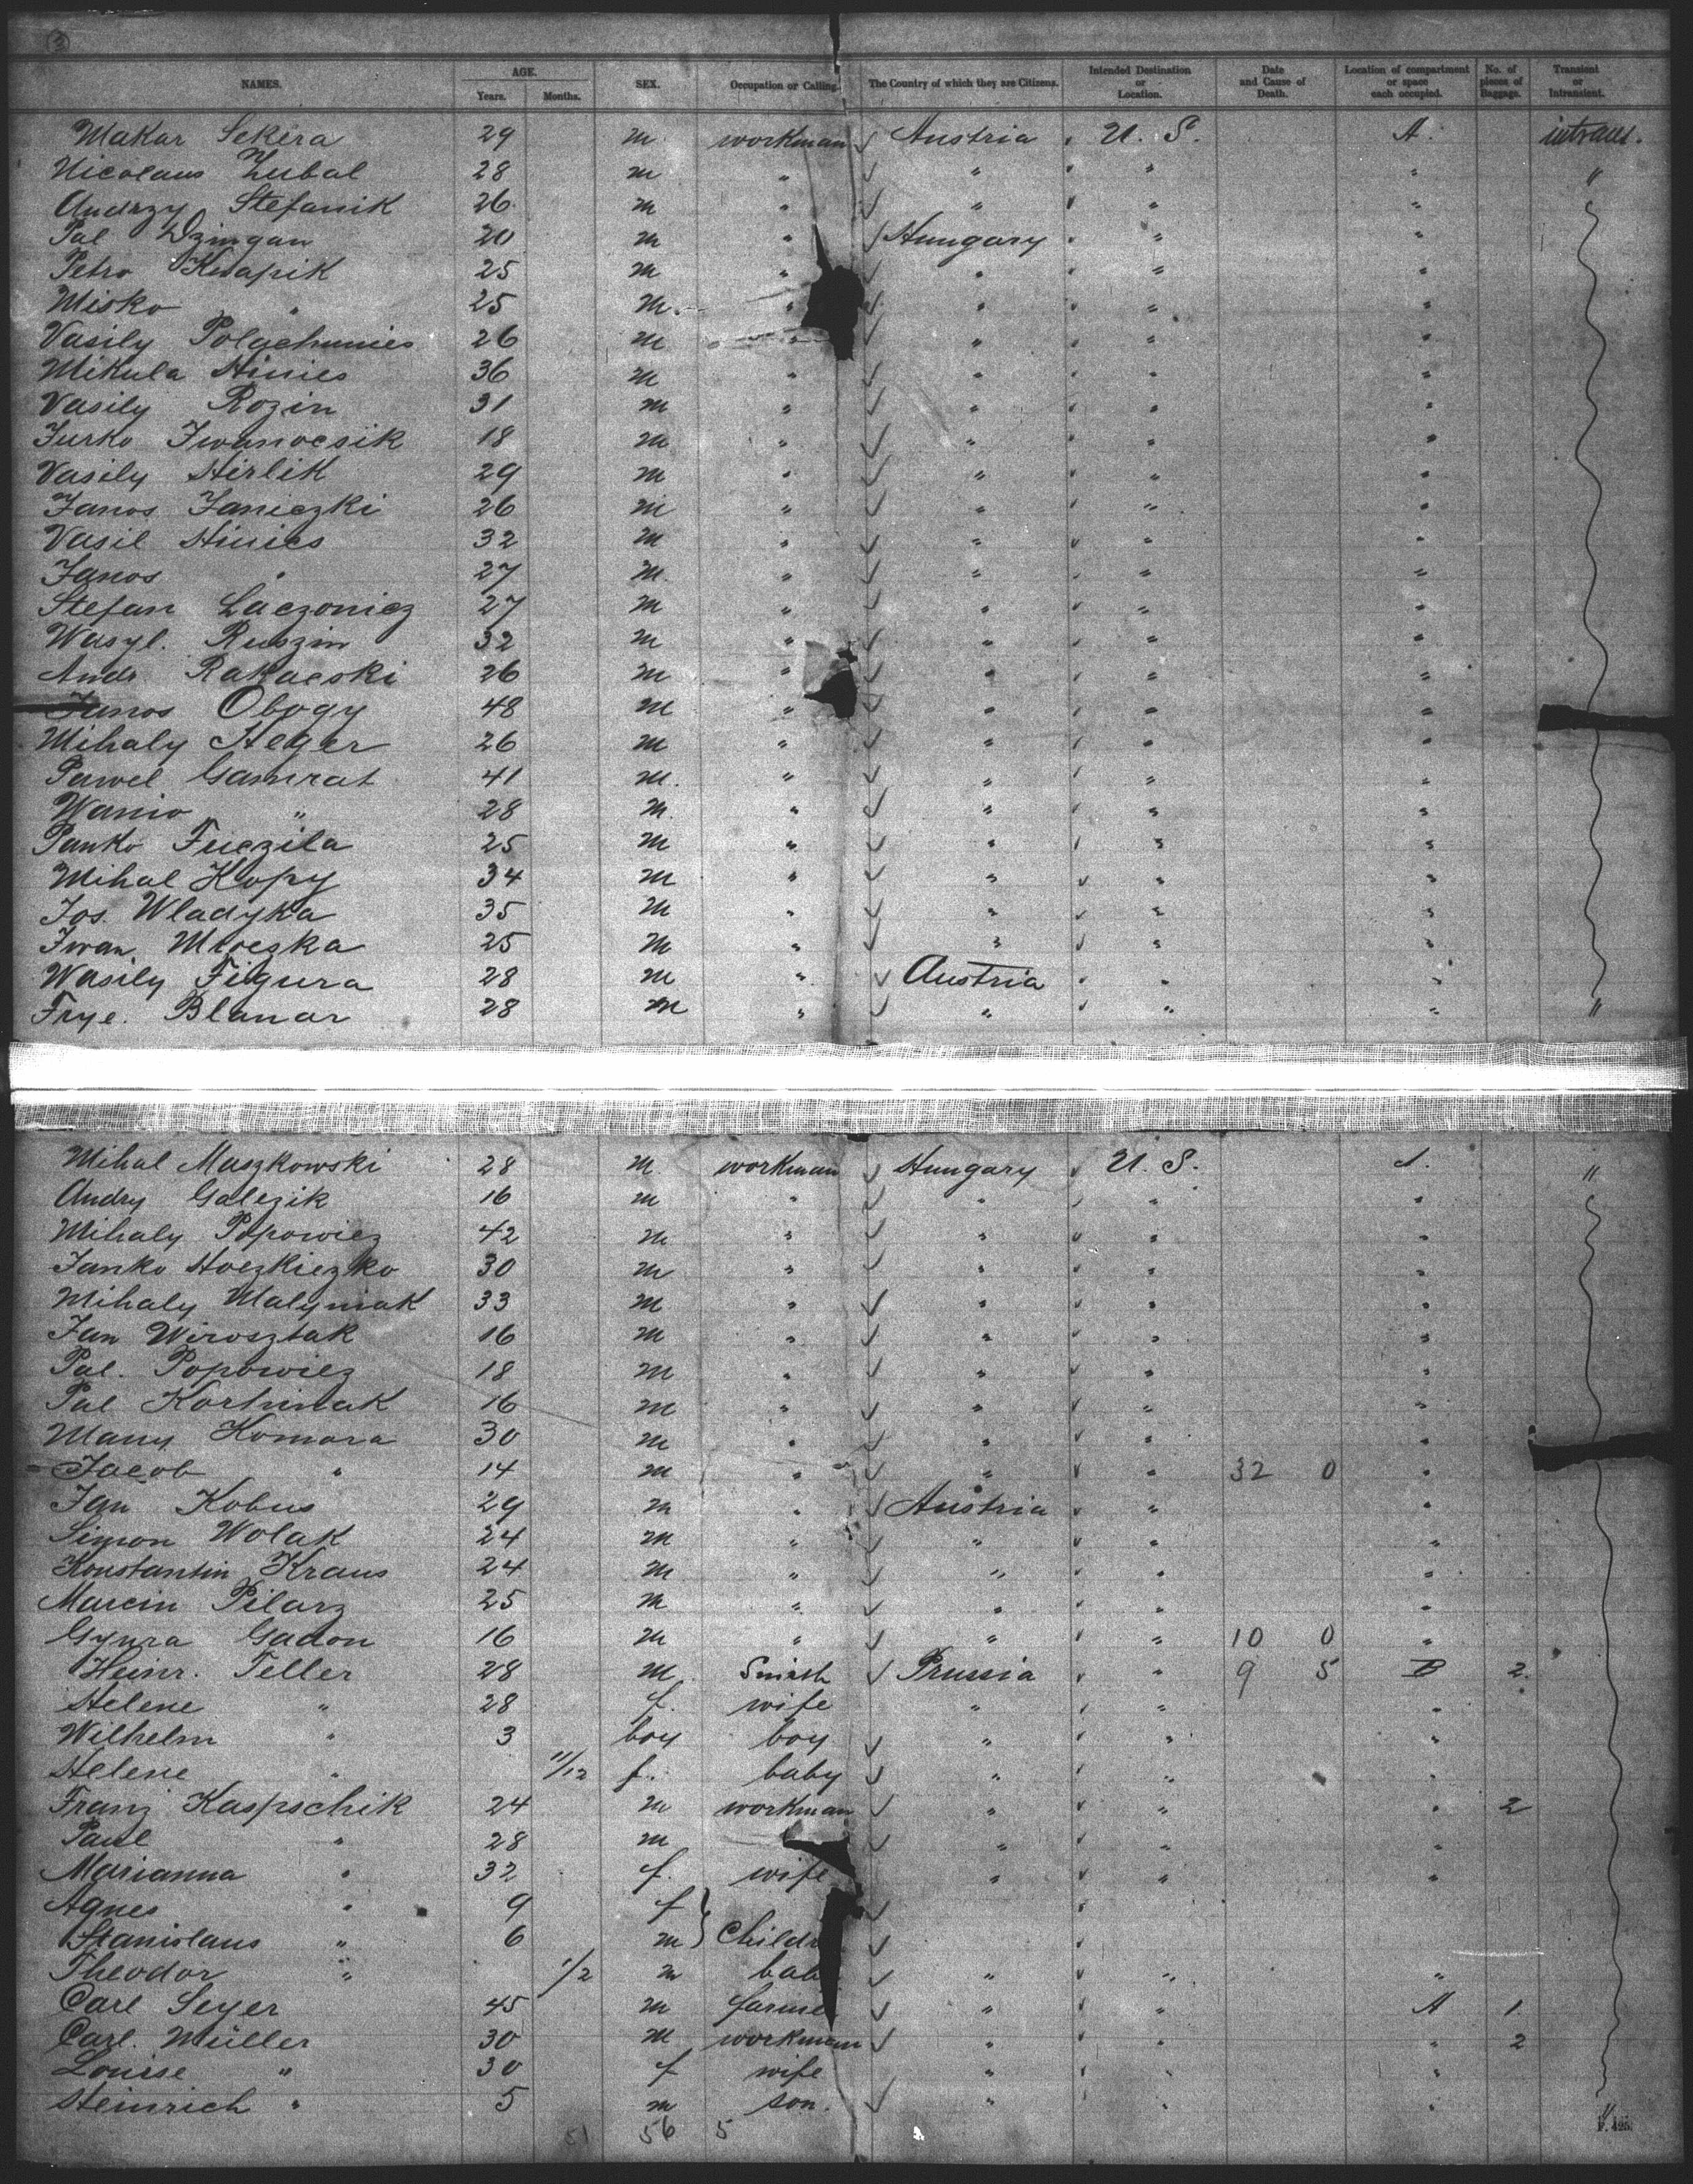 3
NAMES. AGE. Years. Months. SEX. Occupation or Calling. The Country of which they are Citizens. Intended Destination or Location. Date and Cause of Death. Location of compartment or space each occupied. No. of pieces of Baggage. Transient or Intransient.
Makar Sekira 29 m workman Austria U. S. A. intrans.
Nicolaus Zubal 28 m " " " " "
Andrzy Stefanik 26 m " " " "
Pal Dzingan 20 m " Hungary " "
Petro Knapik 25 m " " " "
Misko " 25 m " " " "
Vasily 26 m " " " "
Mikula Hinies 36 m " " " "
Vasily Rozin 31 m " " " "
Jurko Iwanocsik 18 m " " " "
Vasily Hirlik 29 m " " " "
Janos Janiczki 26 m " " " "
Vasil Hinies 32 m " " " "
Janos " 27 m " " " "
Stefan Laczonicz 27 m " " " "
Wasyl. Ruszin 32 m " " " "
Andr Rakacski 26 m " " " "
Janos Obogy 48 m " " " "
Mihaly Heger 26 m " " " "
Pawel Gamrat 41 m " " " "
Wanio " 28 m " " " "
Panko Fuczila 25 m " " " "
Mihal Kopy 34 m " " " "
Jos. Wladyka 35 m " " " "
Iwan Mloczka 25 m " " " "
Wasily Figura 28 m " Austria " "
Frye. Blanar 28 m " " " " "
Mihal Maszkowski 28 m workman Hungary U. S. A. "
Andry Galezik 16 m " " " "
Mihaly Popowicz 42 m " " " "
Janko Hoczkiczko 30 m " " " "
Mihaly Malyniak 33 m " " " "
Jan Wirosztak 16 m " " " "
Pal. Popowicz 18 m " " " "
Pal 16 m " " " "
Many Komara 30 m " " " "
Jacob " 14 m " " " 32 0 "
Jan Kobus 29 m " Austria " "
Simon Wolak 24 m " " " "
Konstantin Kraus 24 m " " " "
Marcin Pilarz 25 m " " " "
Gyura Gadon 16 m " " " 10 0 "
Heinr. Teller 28 m Smith Prussia " 9 5 B 2
Helene " 28 f. wife " " "
Wilhelm " 3 boy boy " " "
Helene " 11/12 f. baby " " "
Franz Kaspschik 24 m workman " " " 2
Paul " 28 m " " "
Marianna " 32 f. wife " " "
Agnes " 9 f
Stanislaus " 6 m Childr
Theodor " 1/2 m bab " " "
Carl Seyer 45 m farme " " A 1
Carl. Müller 30 m workman " " " 2
Louise " 30 f wife " " "
Heinrich " 5 m son. " " " "
51 56 5